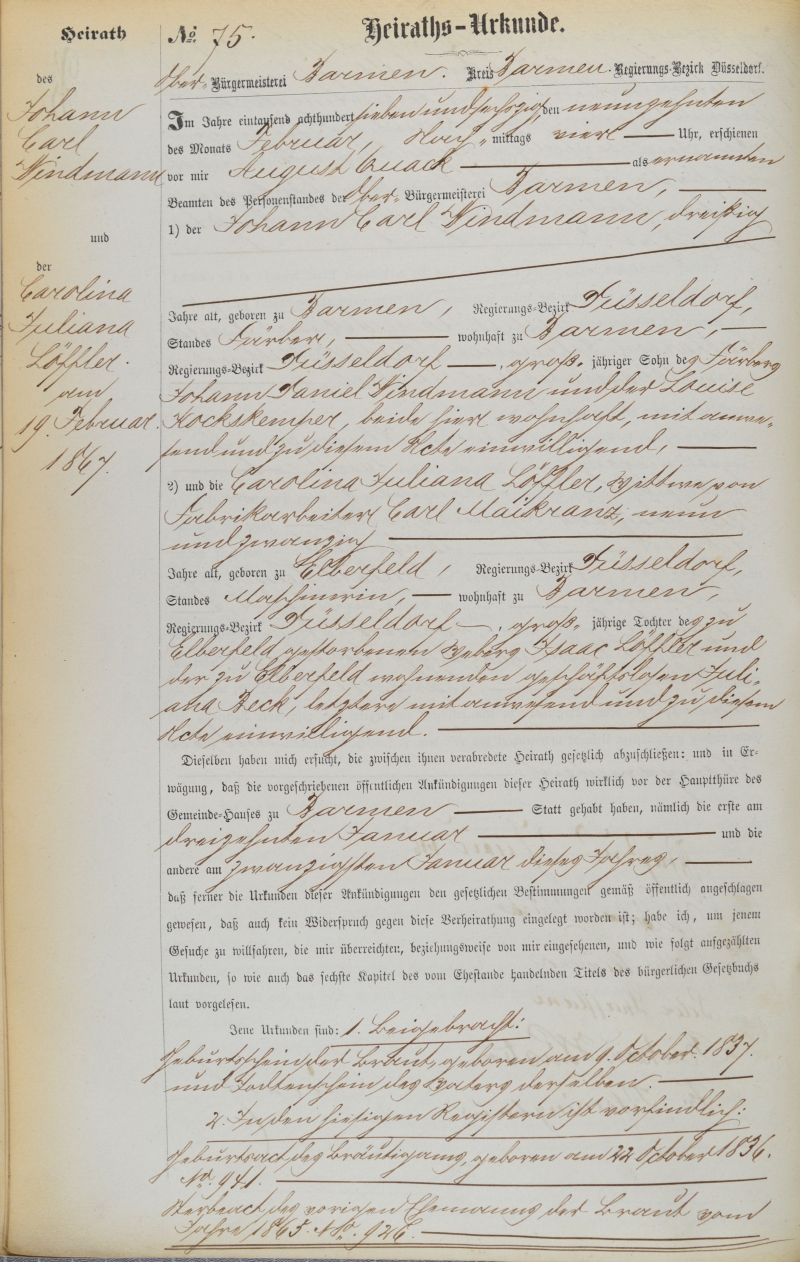 Heirath
des
Johann
Carl
Windmann
und
der
Carolina
Juliana
Löffler.
am
19. Februar.
1867.
No. 75. Heiraths-Urkunde.
Ober- Bürgermeisterei Barmen. Kreis Barmen. Regierungs-Bezirk Düsseldorf.
Im Jahre eintausend achthundert sieben und sechszig, den neunzehnten
des Monats Februar, Nach- mittags vier Uhr, erschienen
vor mir August Quack als ernannten
Beamten des Personenstandes der Ober- Bürgermeisterei Barmen,
1) der Johann Carl Windmann, dreißig
Jahre alt, geboren zu Barmen, Regierungs-Bezirk Düsseldorf,
Standes Färber, wohnhaft zu Barmen,
Regierungs-Bezirk Düsseldorf, groß- jähriger Sohn des Färbers
Johann Daniel Windmann und der Louise
Kockskemper, beide hier wohnhaft, mit anwe-
send und zu diesem Acte einwilligend,
2) und die Carolina Juliana Löffler, Wittwe von
Fabrikarbeiter Carl Maikranz, neun
und zwanzig
Jahre alt, geboren zu Elberfeld, Regierungs-Bezirk Düsseldorf,
Standes wohnhaft zu Barmen,
Regierungs-Bezirk Düsseldorf, groß- jährige Tochter des zu
Elberfeld gestorbenen Webers Isaac Löffler und
der zu Elberfeld wohnenden geschäftslosen Juli-
ana Beck, letztere mit anwesend und zu diesem
Acte einwilligend.
Dieselben haben mich ersucht, die zwischen ihnen verabredete Heirath gesetzlich abzuschließen: und in Er-
wägung, daß die vorgeschriebenen öffentlichen Ankündigungen dieser Heirath wirklich vor der Hauptthüre des
Gemeinde-Hauses zu Barmen Statt gehabt haben, nämlich die erste am
dreizehnten Januar und die
andere am zwanzigsten Januar dieses Jahres,
daß ferner die Urkunden dieser Ankündigungen den gesetzlichen Bestimmungen gemäß öffentlich angeschlagen
gewesen, daß auch kein Widerspruch gegen diese Verheirathung eingelegt worden ist; habe ich, um jenem
Gesuche zu willfahren, die mir überreichten, beziehungsweise von mir eingesehenen, und wie folgt aufgezählten
Urkunden, so wie auch das sechste Kapitel des vom Ehestande handelnden Titels des bürgerlichen Gesetzbuchs
laut vorgelesen.
Jene Urkunden sind: 1. Beigebracht:
Geburtsschein der Braut, geboren am 9. October 1837.
und Todtenschein des Vaters derselben.
2. In den hiesigen Registern ist vorfindlich:
Geburtsact des Bräutigams, geboren am 22 October 1836.
No. 941.
Sterbeact des vorigen Ehemanns der Braut vom
Jahre 1865 No. 926.